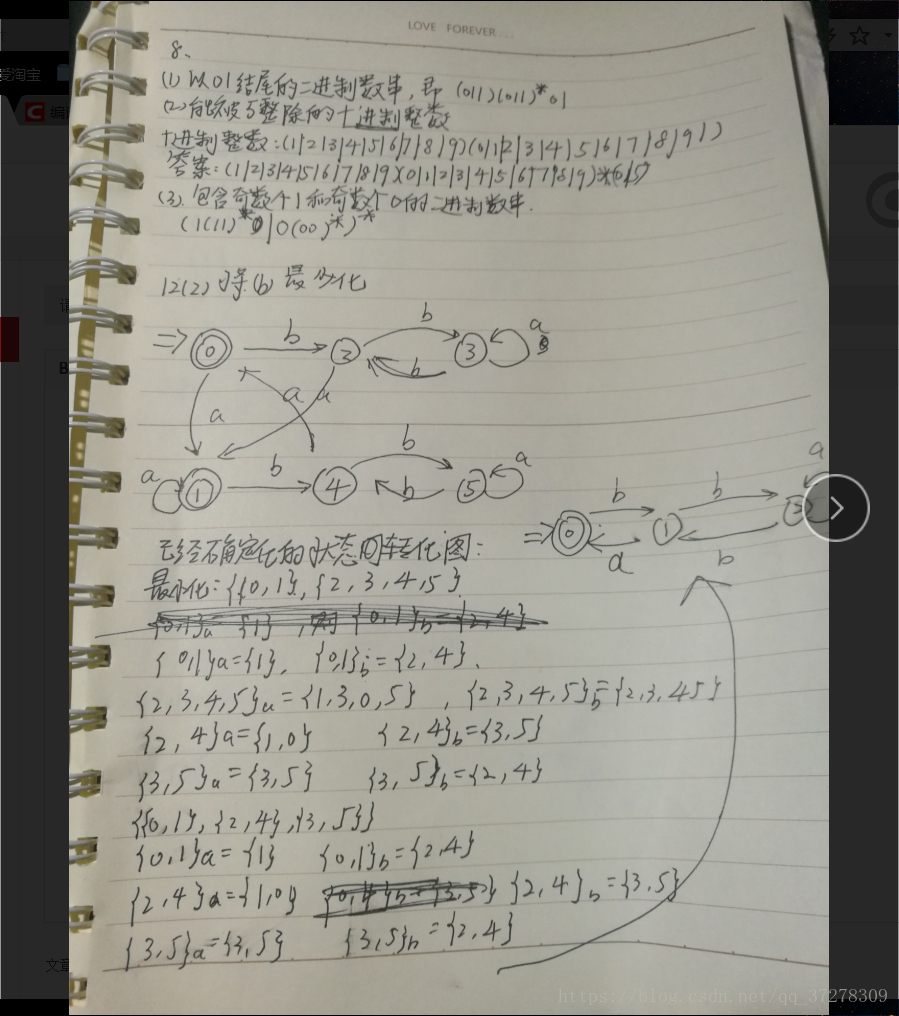 LOVE FOREVER...
8、
(1) 以01结尾的二进制数串，即 (0|1)(0|1)*01
(2) 能被5整除的十进制整数
十进制整数：(1|2|3|4|5|6|7|8|9)(0|1|2|3|4|5|6|7|8|9|)
答案：(1|2|3|4|5|6|7|8|9)(0|1|2|3|4|5|6|7|8|9)*(0|5)
(3). 包含奇数个1和奇数个0的二进制数串.
(1(11)*|0(00)*)*
12(2) 将(b) 最小化
⇒ 0 b 2 b 3 a
b
a a a
a 1 b 4 b 5 a
b
⇒ 0 b 1 b 2 a
a b
已经确定化的状态转化图：
最小化：{{0,1},{2,3,4,5}
{0,1}a={1}, {0,1}b={2,4}、
{2,3,4,5}a={1,3,0,5} , {2,3,4,5}b={2,3,45}
{2,4}a={1,0} {2,4}b={3,5}
{3,5}a={3,5} {3,5}b={2,4}
{{0,1},{2,4},{3,5}}
{0,1}a={1} {0,1}b={2,4}
{2,4}a={1,0} {2,4}b={3,5}
{3,5}a={3,5} {3,5}b={2,4}
爱淘宝
文章
https://blog.csdn.net/qq_37278309